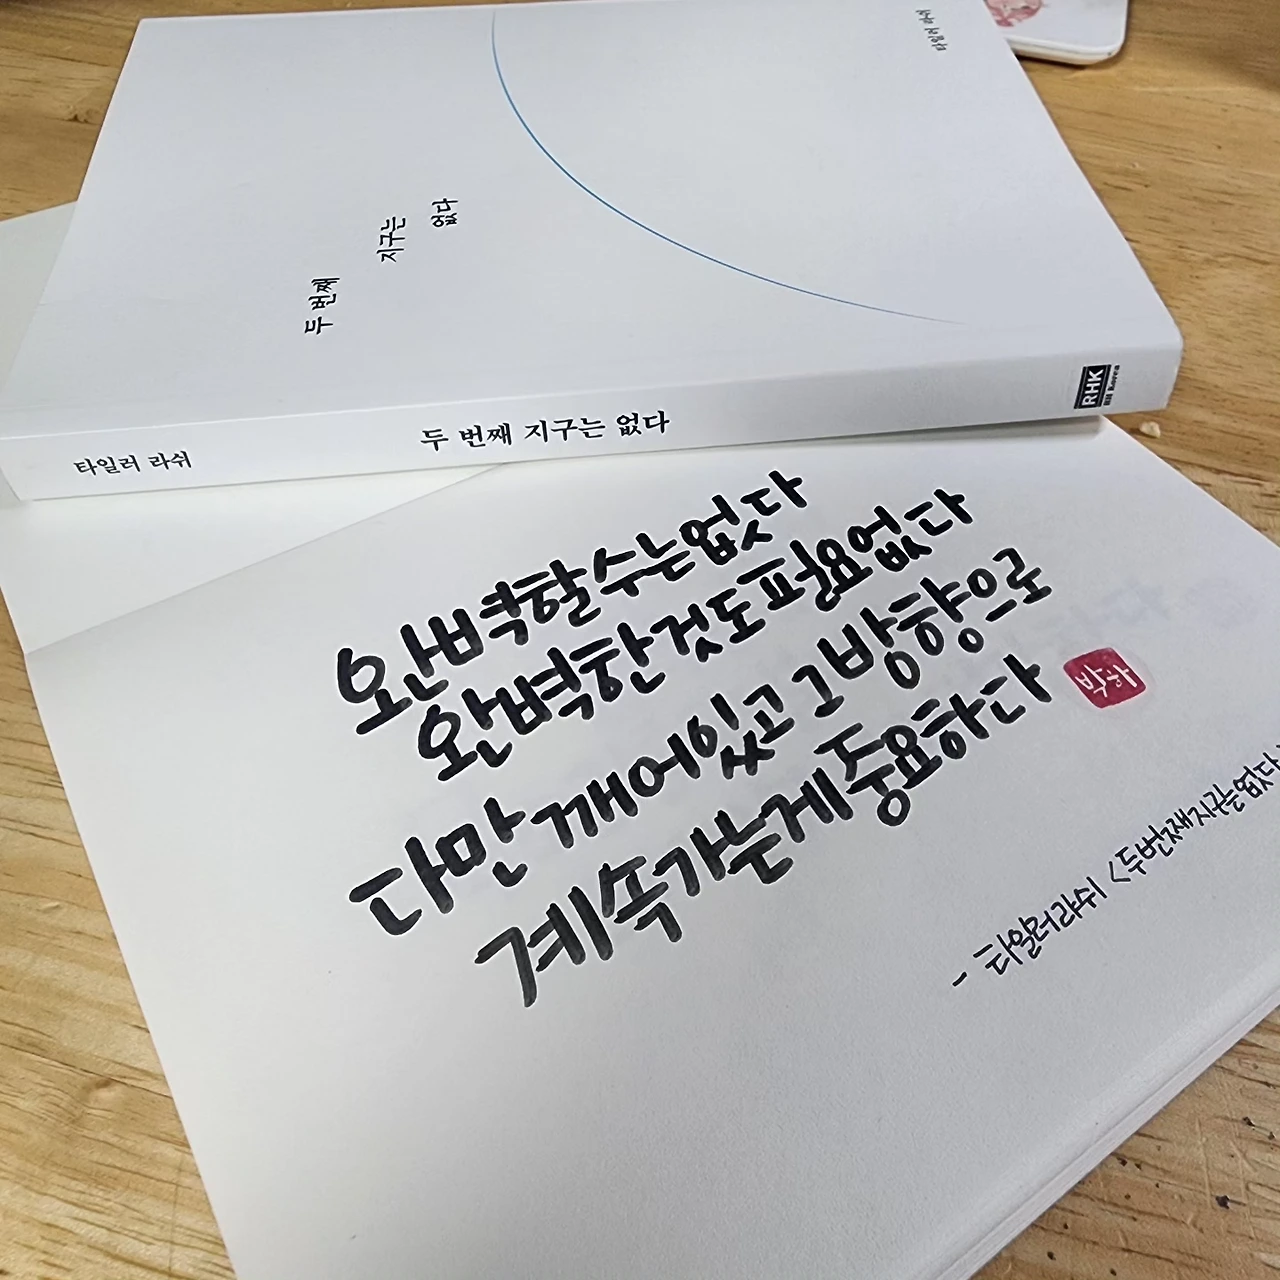 두 번째
지구는
없다
타일러 라쉬
두 번째 지구는 없다
RHK
RH Korea
완벽할 수는 없다
완벽한 것도 필요없다
다만 깨어있고 그 방향으로
계속 가는게 중요하다
박하
- 타일러라쉬 <두번째지구는없다>